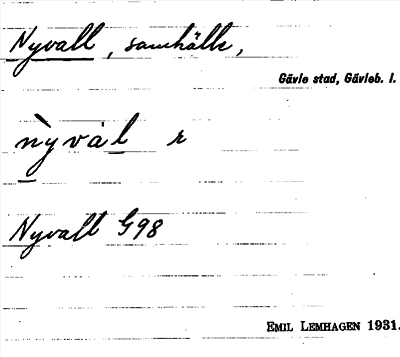 Nyvall, samhälle,
Gävle stad, Gävleb. l.
nỳvàl r
Nyvall G98
EMIL LEMHAGEN 1931.